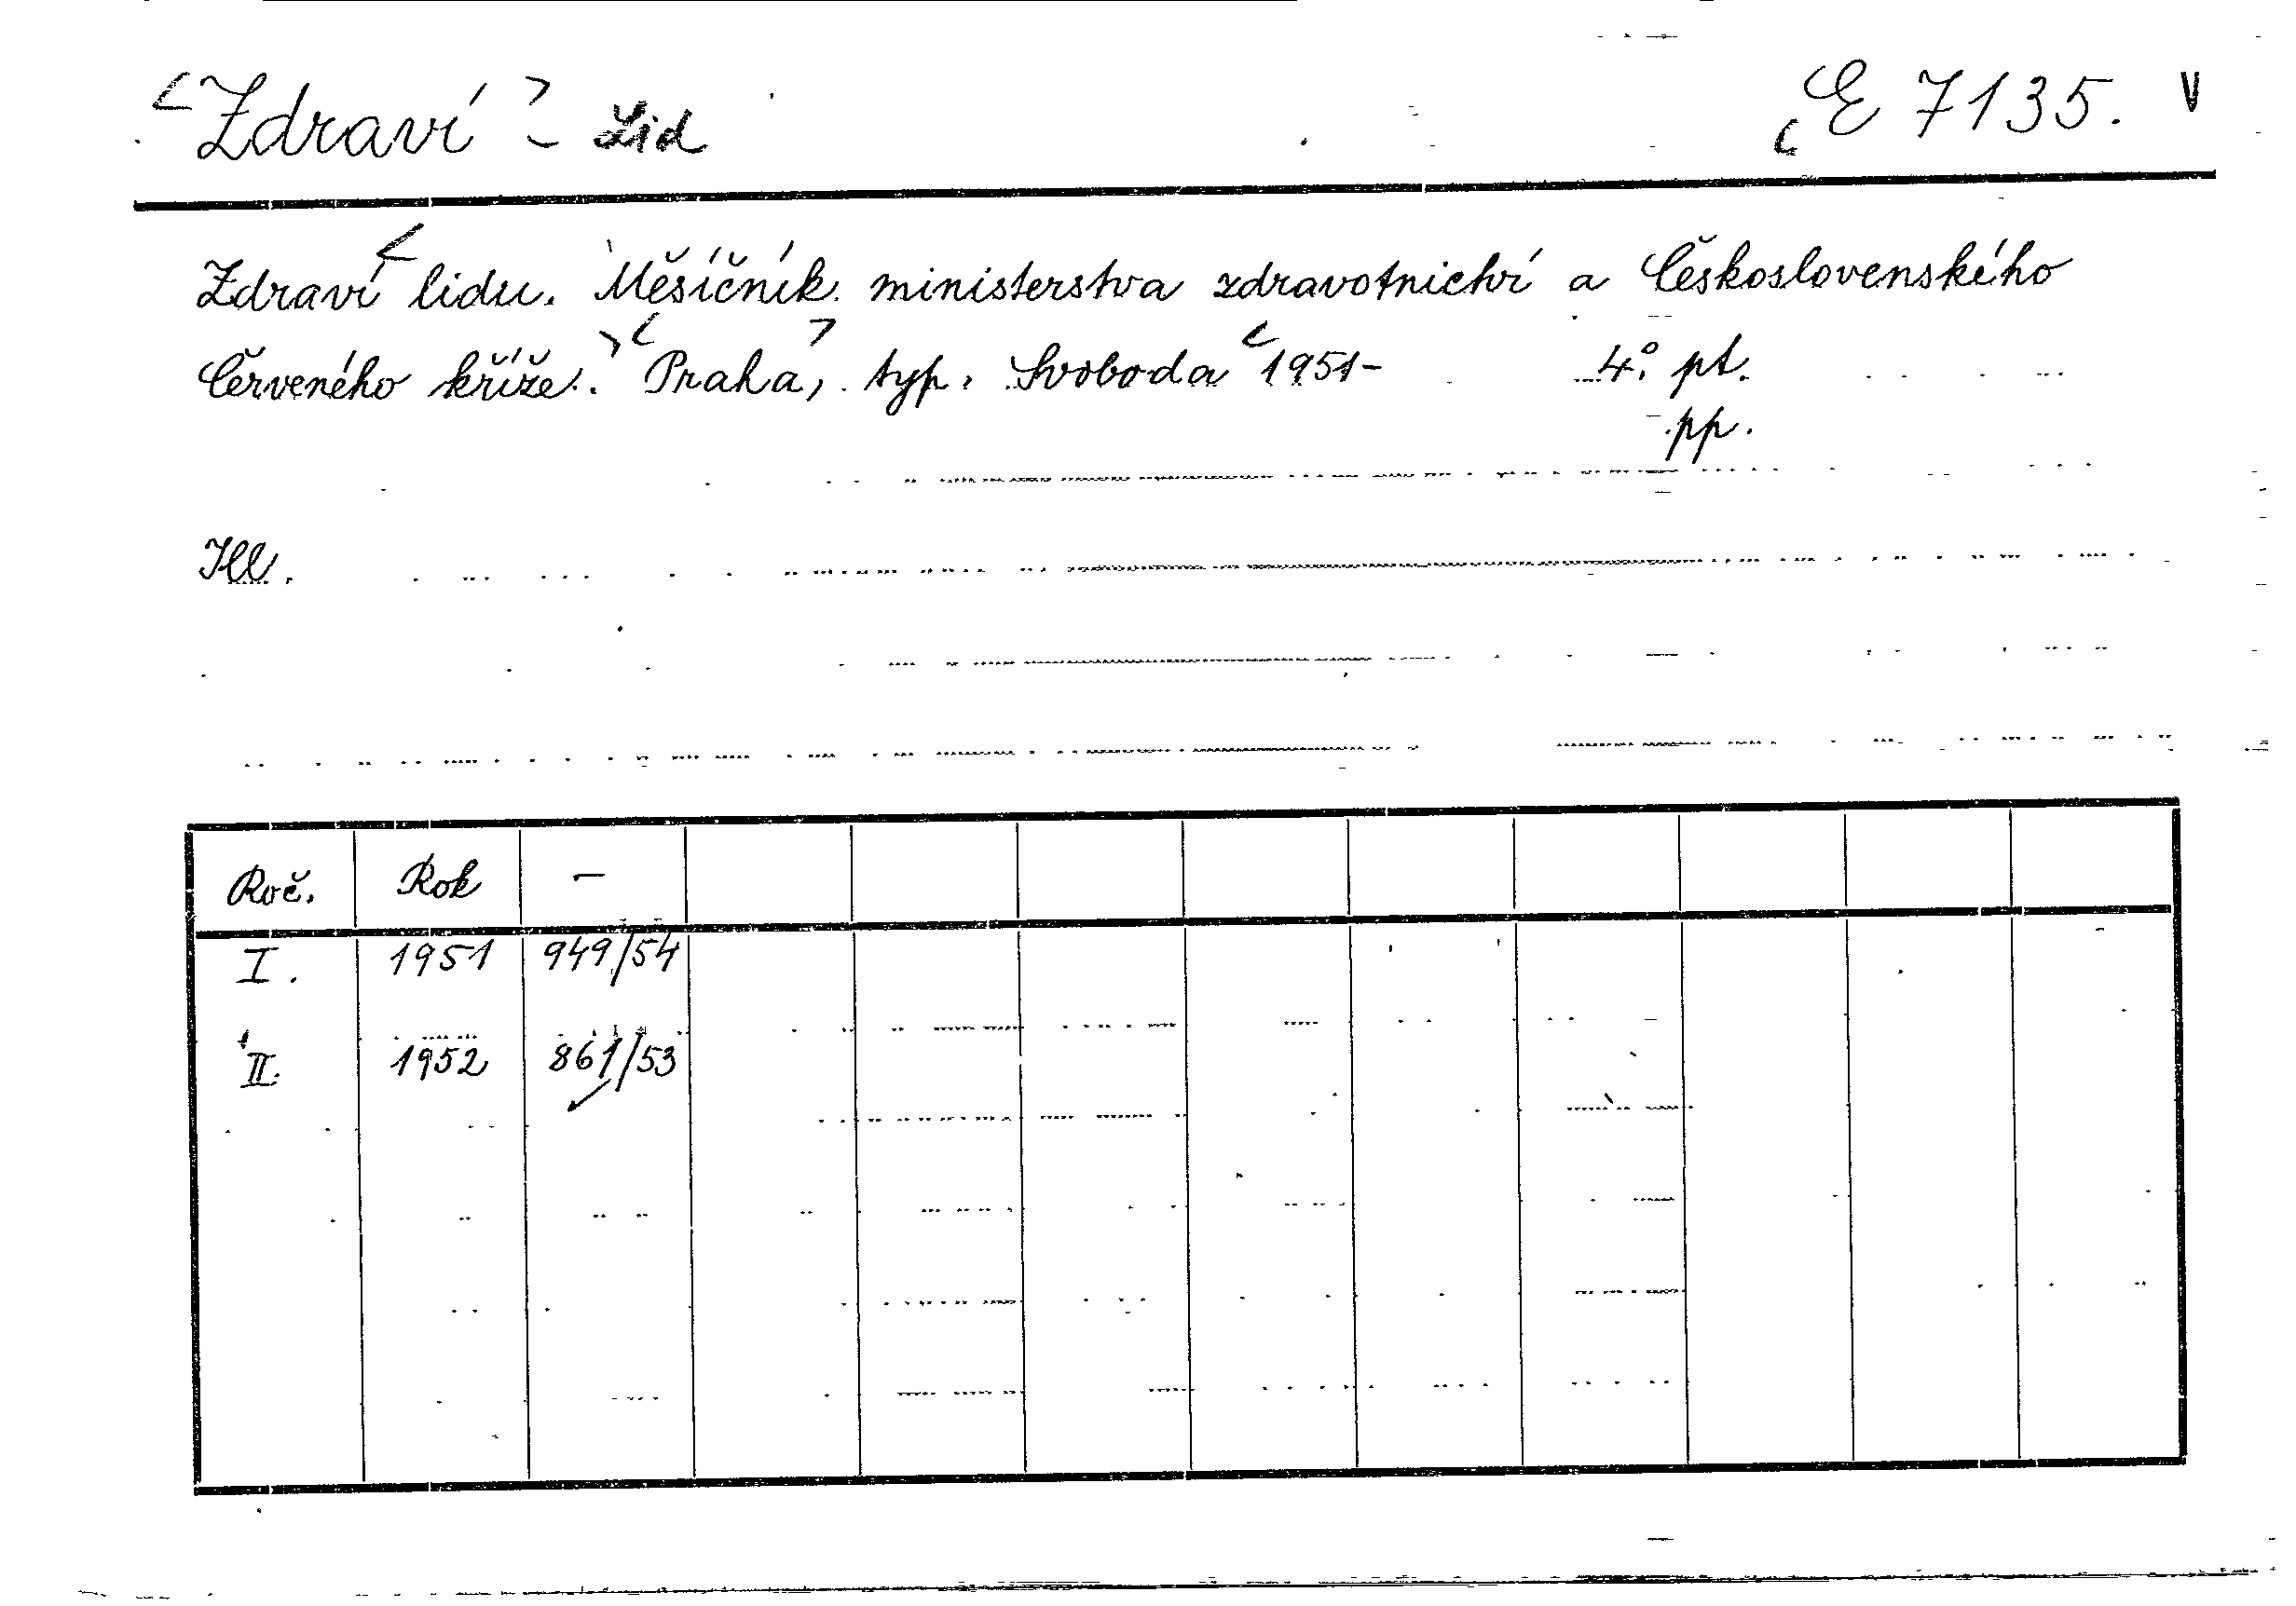 <Zdraví> - Lid E 7135. V
Zdraví lidu. Měsíčník ministerstva zdravotnictví a Československého
Červeného kříže. Praha, typ. Svoboda 1951- 4° pt.
pp.
Ill.
Roč. Rok -
I. 1951 949/54
II. 1952 861/53